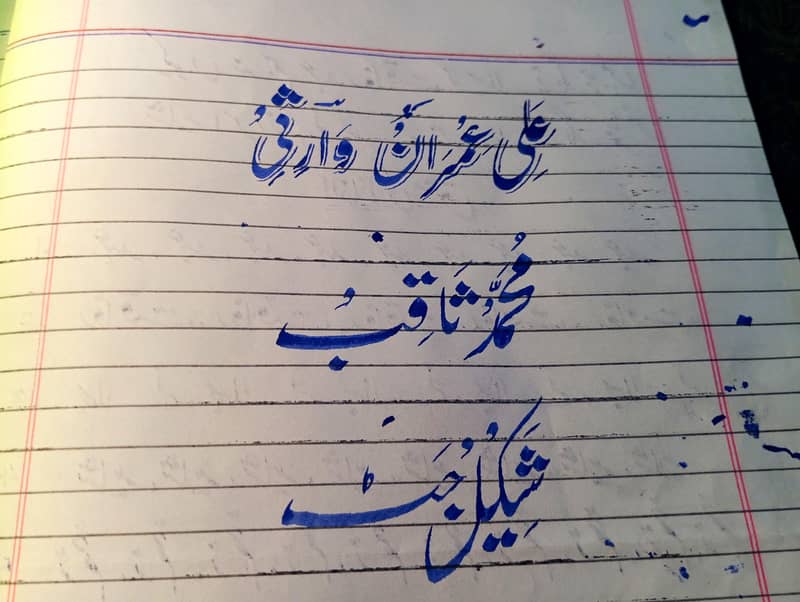 عَلِی عِمْرَانْ وَآرِثِیُ
مُحَمَّدُ ثَاقِبُ
شَکِیْلُ جَٹ